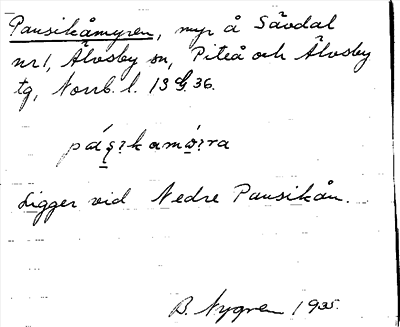 Pausikåmyren, myr å Sävdal
nr 1, Älvsby sn, Piteå och Älvsby
tg, Norrb. l. 13 G. 36.
Ligger vid Nedre Pausikån.
B. Nygren 1935.